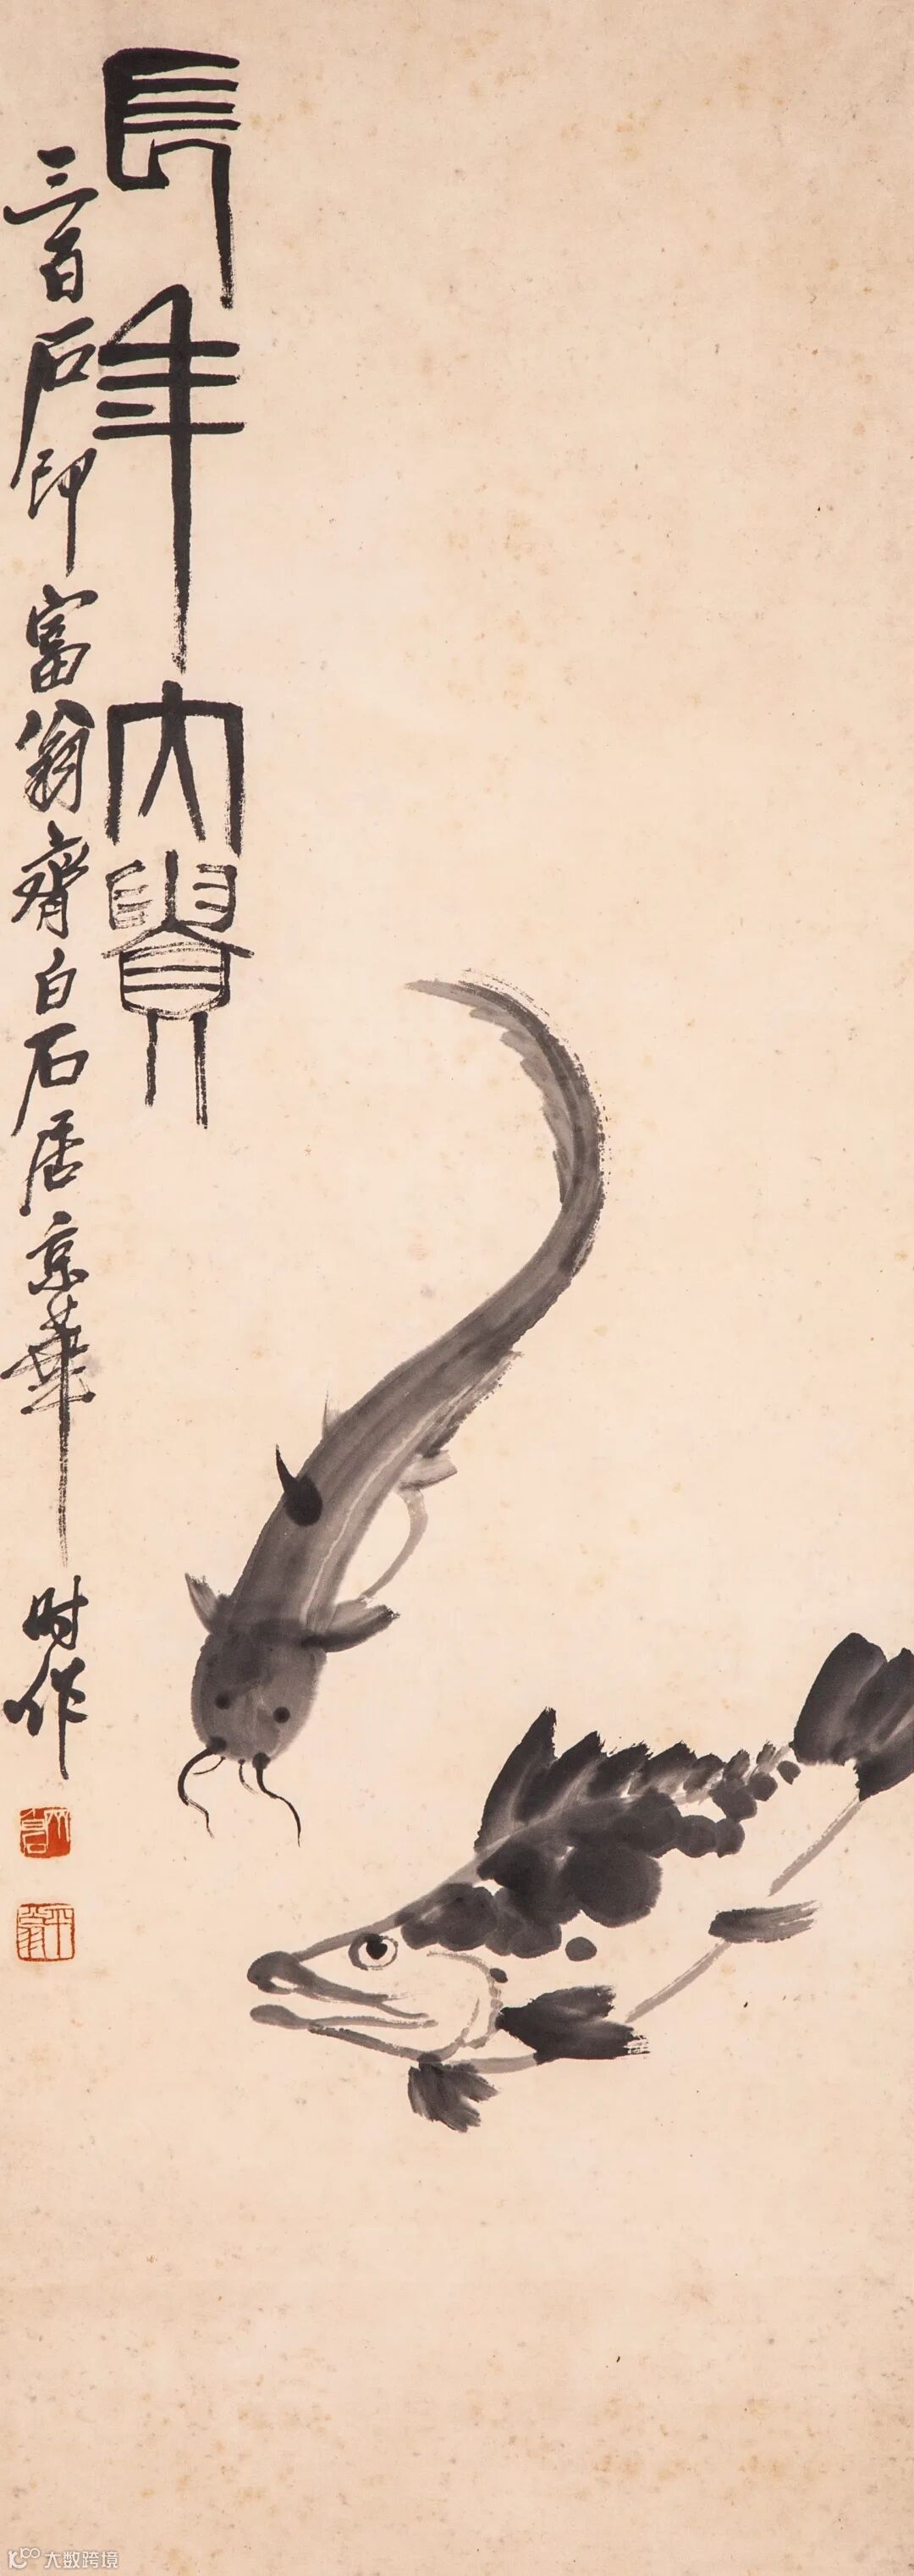 長年大貴
三百石印富翁齊白石居京華时作
大数跨境